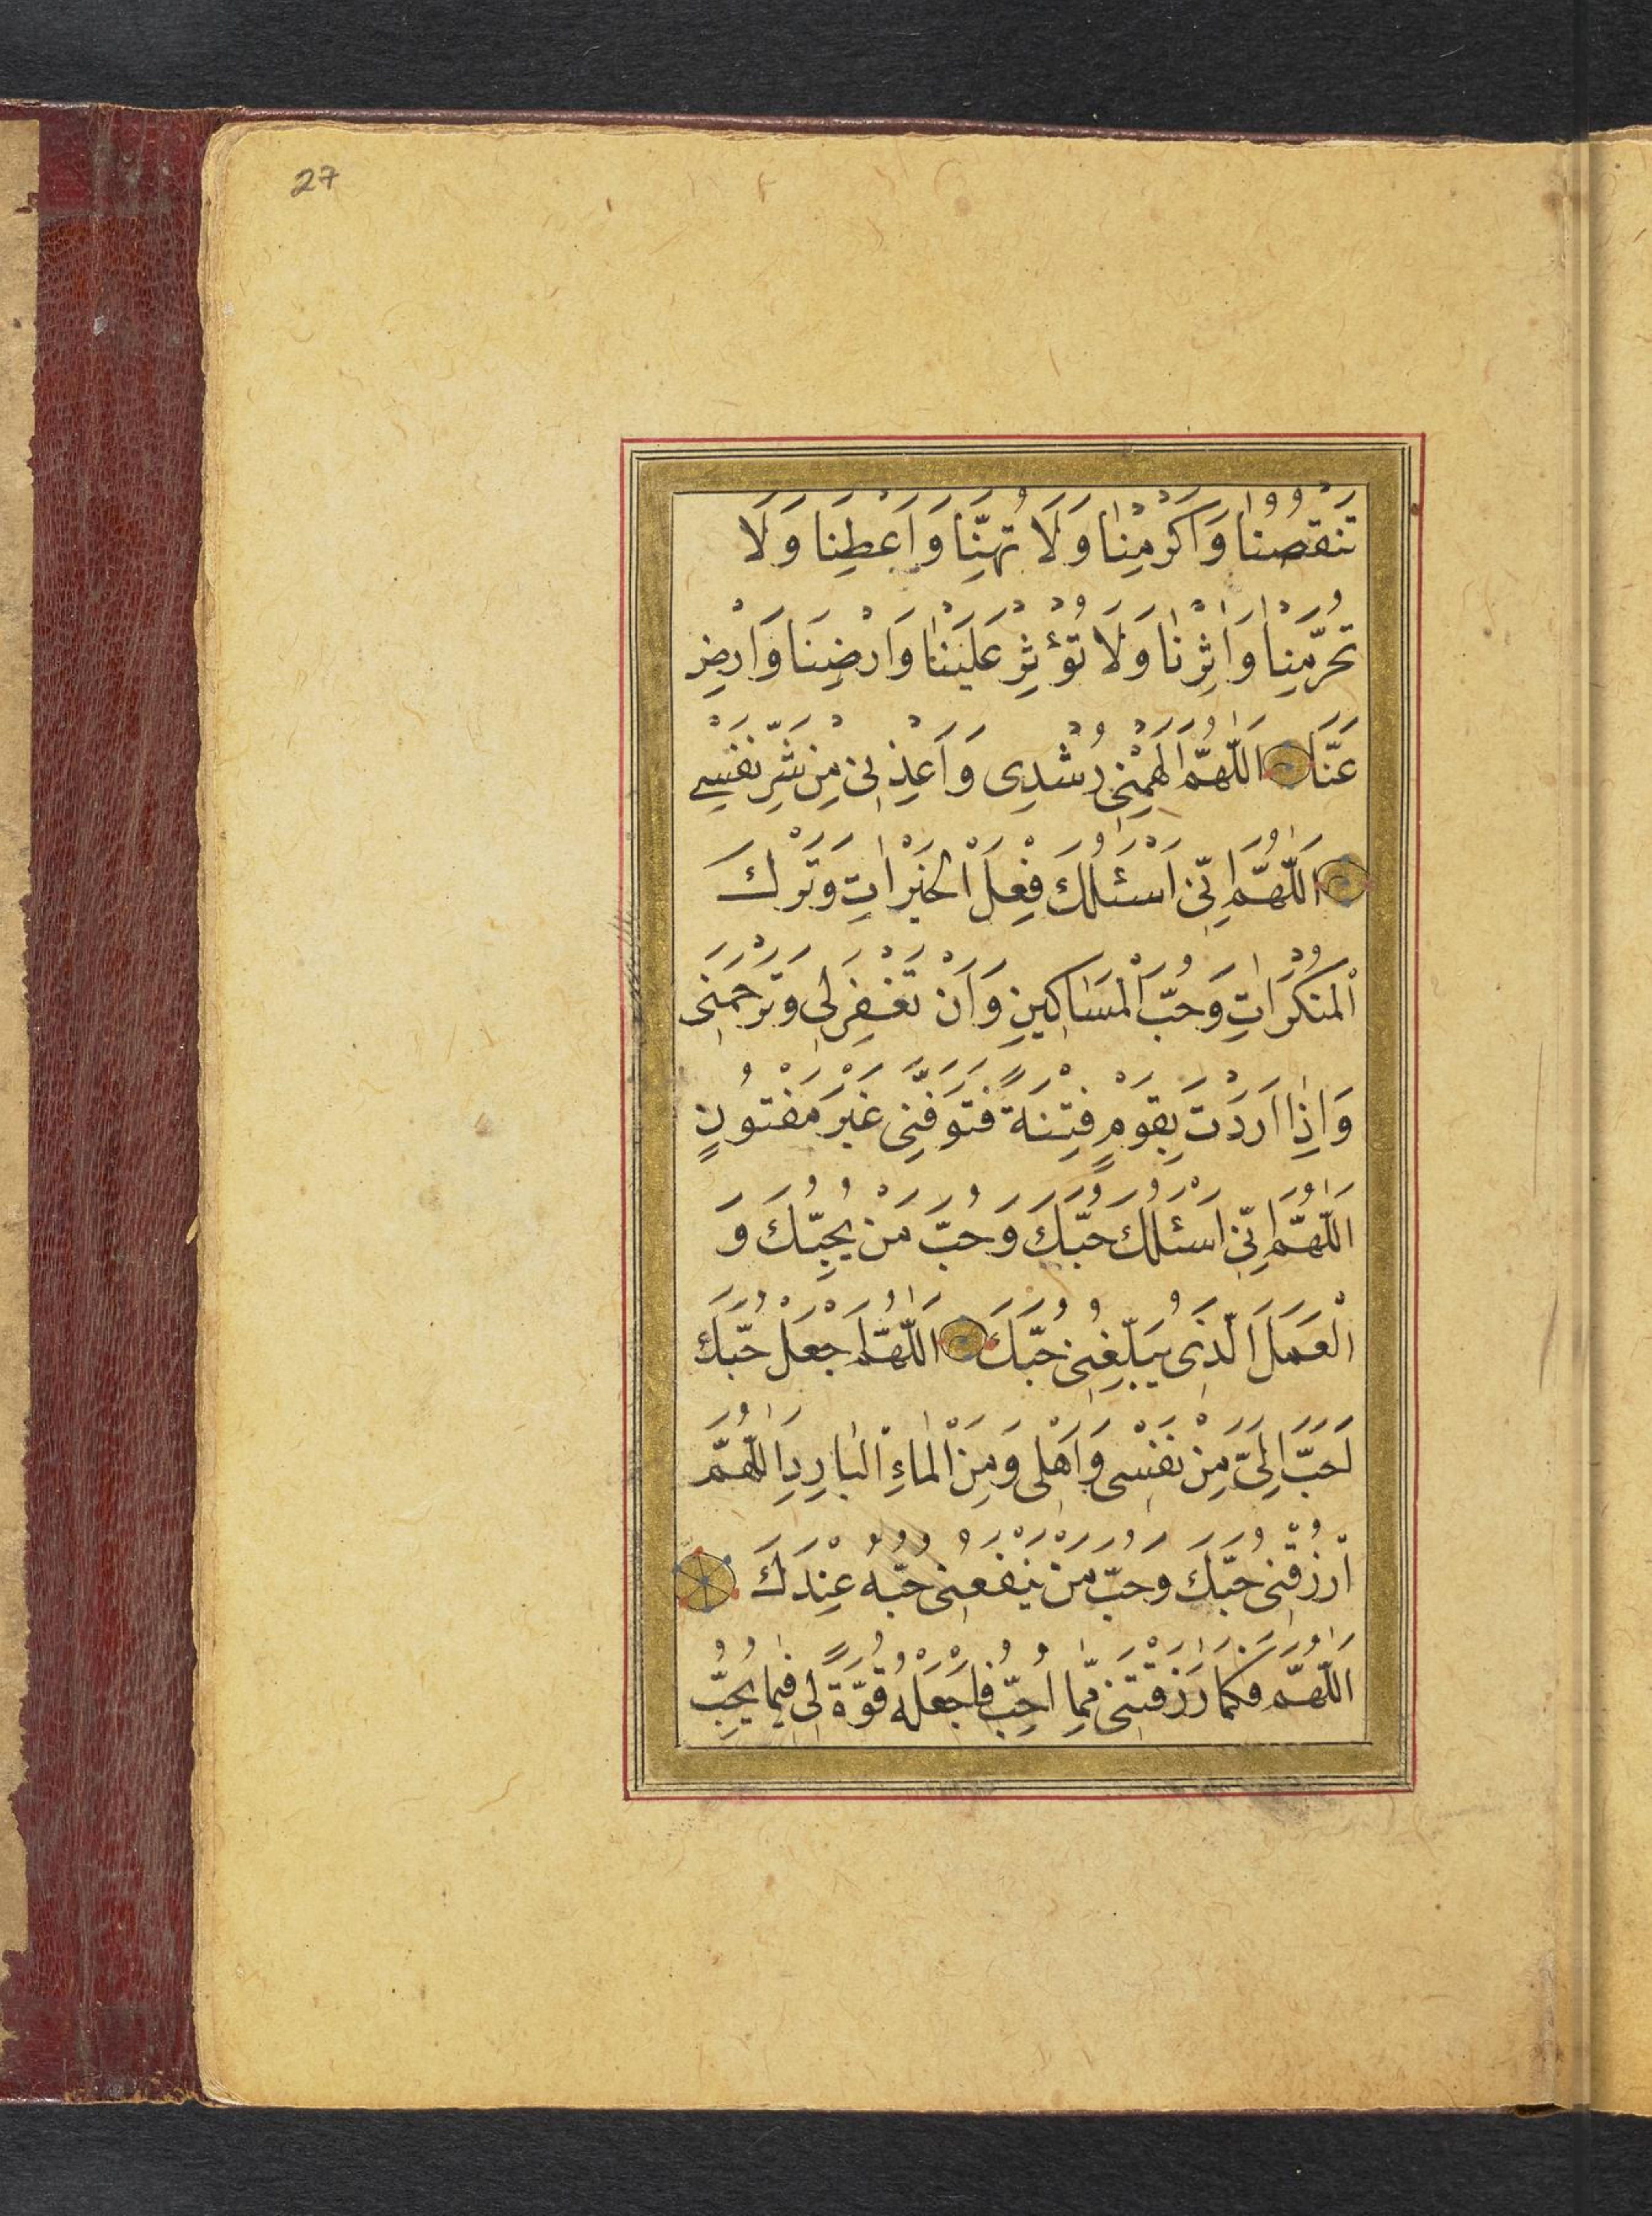 27
تَنْقُصْنَا وَاَكْرِمْنَا وَلَا تُهِنَّا وَاَعْطِنَا وَلَا
تَحْرِمْنَا وَاٰثِرْنَا وَلَا تُؤْثِرْ عَلَيْنَا وَارْضِنَا وَارْضَ
عَنَّا اَللّٰهُمَّ اَلْهِمْنِى رُشْدِى وَاَعِذْنِى مِنْ شَرِّ نَفْسِى
اَللّٰهُمَّ اِنِّى اَسْئَلُكَ فِعْلَ الْخَيْرَاتِ وَتَرْكَ
الْمُنْكَرَاتِ وَحُبَّ الْمَسَاكِينِ وَاَنْ تَغْفِرَلِى وَتَرْحَمَنِى
وَاِذَا اَرَدْتَ بِقَوْمٍ فِتْنَةً فَتَوَفَّنِى غَيْرَ مَفْتُونٍ
اَللّٰهُمَّ اِنِّى اَسْئَلُكَ حُبَّكَ وَحُبَّ مَنْ يُحِبُّكَ وَ
الْعَمَلَ الَّذِى يُبَلِّغُنِى حُبَّكَ اَللّٰهُمَّ اجْعَلْ حُبَّكَ
اَحَبَّ اِلَىَّ مِنْ نَفْسِى وَاَهْلِى وَمِنَ الْمَاءِ الْبَارِدِ اَللّٰهُمَّ
ارْزُقْنِى حُبَّكَ وَحُبَّ مَنْ يَنْفَعُنِى حُبُّهُ عِنْدَكَ
اَللّٰهُمَّ فَكَمَا رَزَقْتَنِى مِمَّا اُحِبُّ فَاجْعَلْهُ قُوَّةً لِى فِيمَا يُحِبُّ